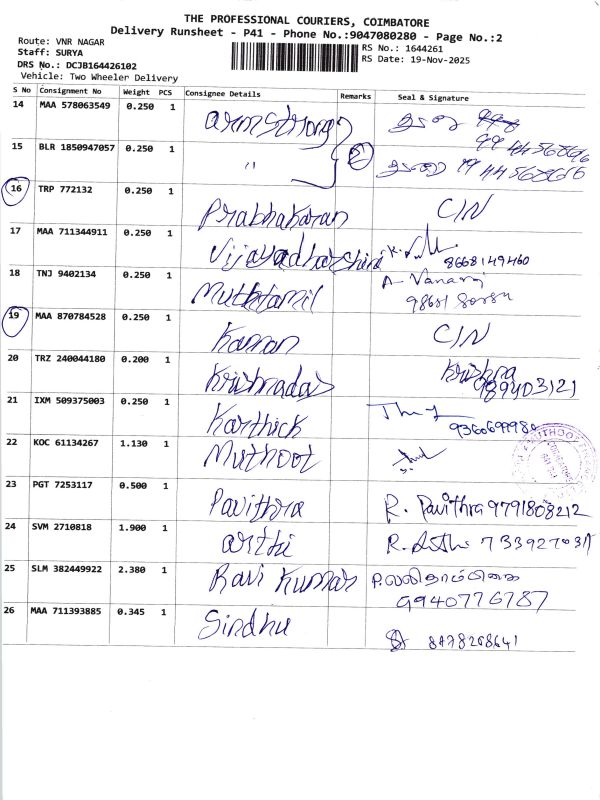 THE PROFESSIONAL COURIERS, COIMBATORE
Delivery Runsheet - P41 - Phone No.:9047080280 - Page No.:2
Route: VNR NAGAR
Staff: SURYA
RS No.: 1644261
DRS No.: DCJB164426102
RS Date: 19-Nov-2025
Vehicle: Two Wheeler Delivery
S No Consignment No Weight PCS Consignee Details Remarks Seal & Signature
14 MAA 578063549 0.250 1 Armstrong
15 BLR 1850947057 0.250 1 " 2
16 TRP 772132 0.250 1 Prabhakaran C/N
17 MAA 711344911 0.250 1 Vijayadharshini 8668149460
18 TNJ 9402134 0.250 1 Muthtamil A- Vanaraj
19 MAA 870784528 0.250 1 Kannan C/N
20 TRZ 240044180 0.200 1 Krishnadas Krishna
21 IXM 509375003 0.250 1 Karthick
22 KOC 61134267 1.130 1 Muthoot
23 PGT 7253117 0.500 1 Pavithra R. Pavithra 9791808212
24 SVM 2710818 1.900 1 arthi
25 SLM 382449922 2.380 1 Ravi Kumar
9940776787
26 MAA 711393885 0.345 1 Sindhu
8478268641